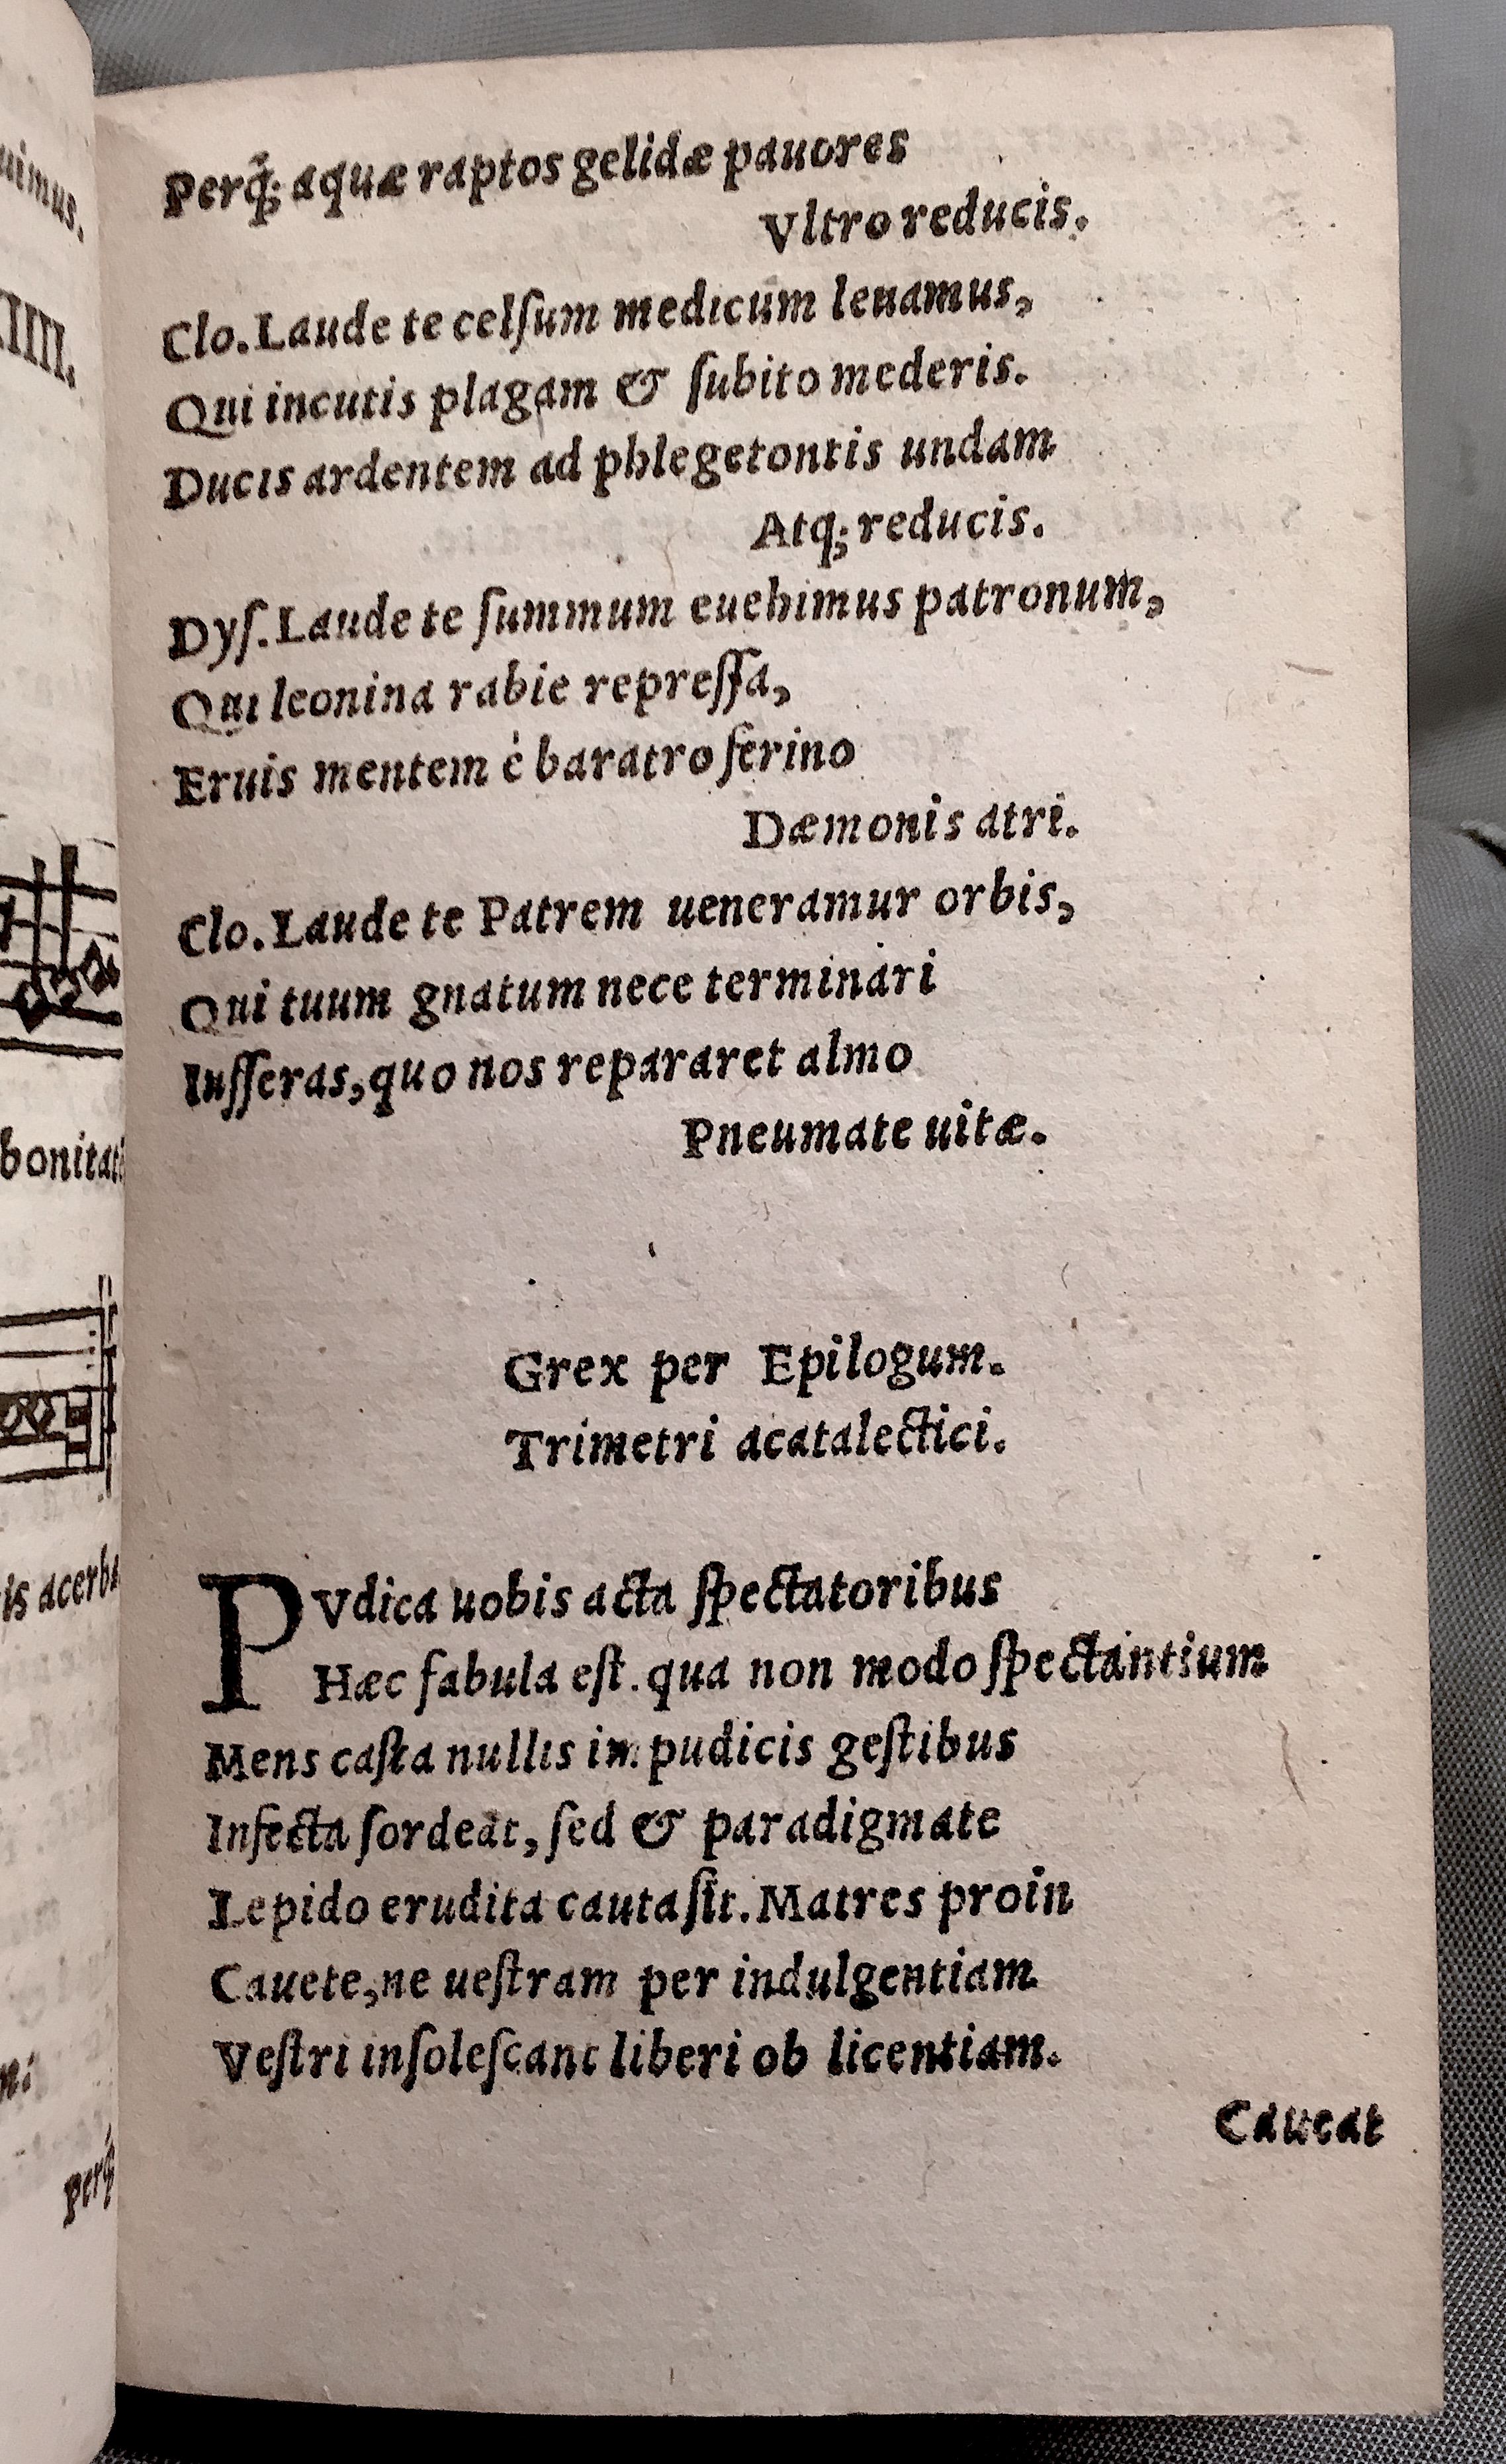 uimus.
XIIII.
bonitati
is acerba
perq́
Perq́; aquæ raptos gelidæ pauores
Vltro reducis.
Clo. Laude te celſum medicum leuamus,
Qui incutis plagam & ſubito mederis.
Ducis ardentem ad phlegetontis undam
Atq; reducis.
Dyſ. Laude te ſummum euehimus patronum,
Qui leonina rabie repreſſa,
Eruis mentem è baratro ferino
Dæmonis atri.
Clo. Laude te Patrem ueneramur orbis,
Qui tuum gnatum nece terminari
Iuſſeras, quo nos repararet almo
Pneumate uitæ.
Grex per Epilogum.
Trimetri acatalectici.
PVdica uobis acta ſpectatoribus
Hæc fabula eſt. qua non modo ſpectantium
Mens caſta nullis impudicis geſtibus
Infecta ſordeat, ſed & paradigmate
Lepido erudita cauta ſit. Matres proin
Cauete, ne ueſtram per indulgentiam
Veſtri inſoleſcant liberi ob licentiam.
Caueat